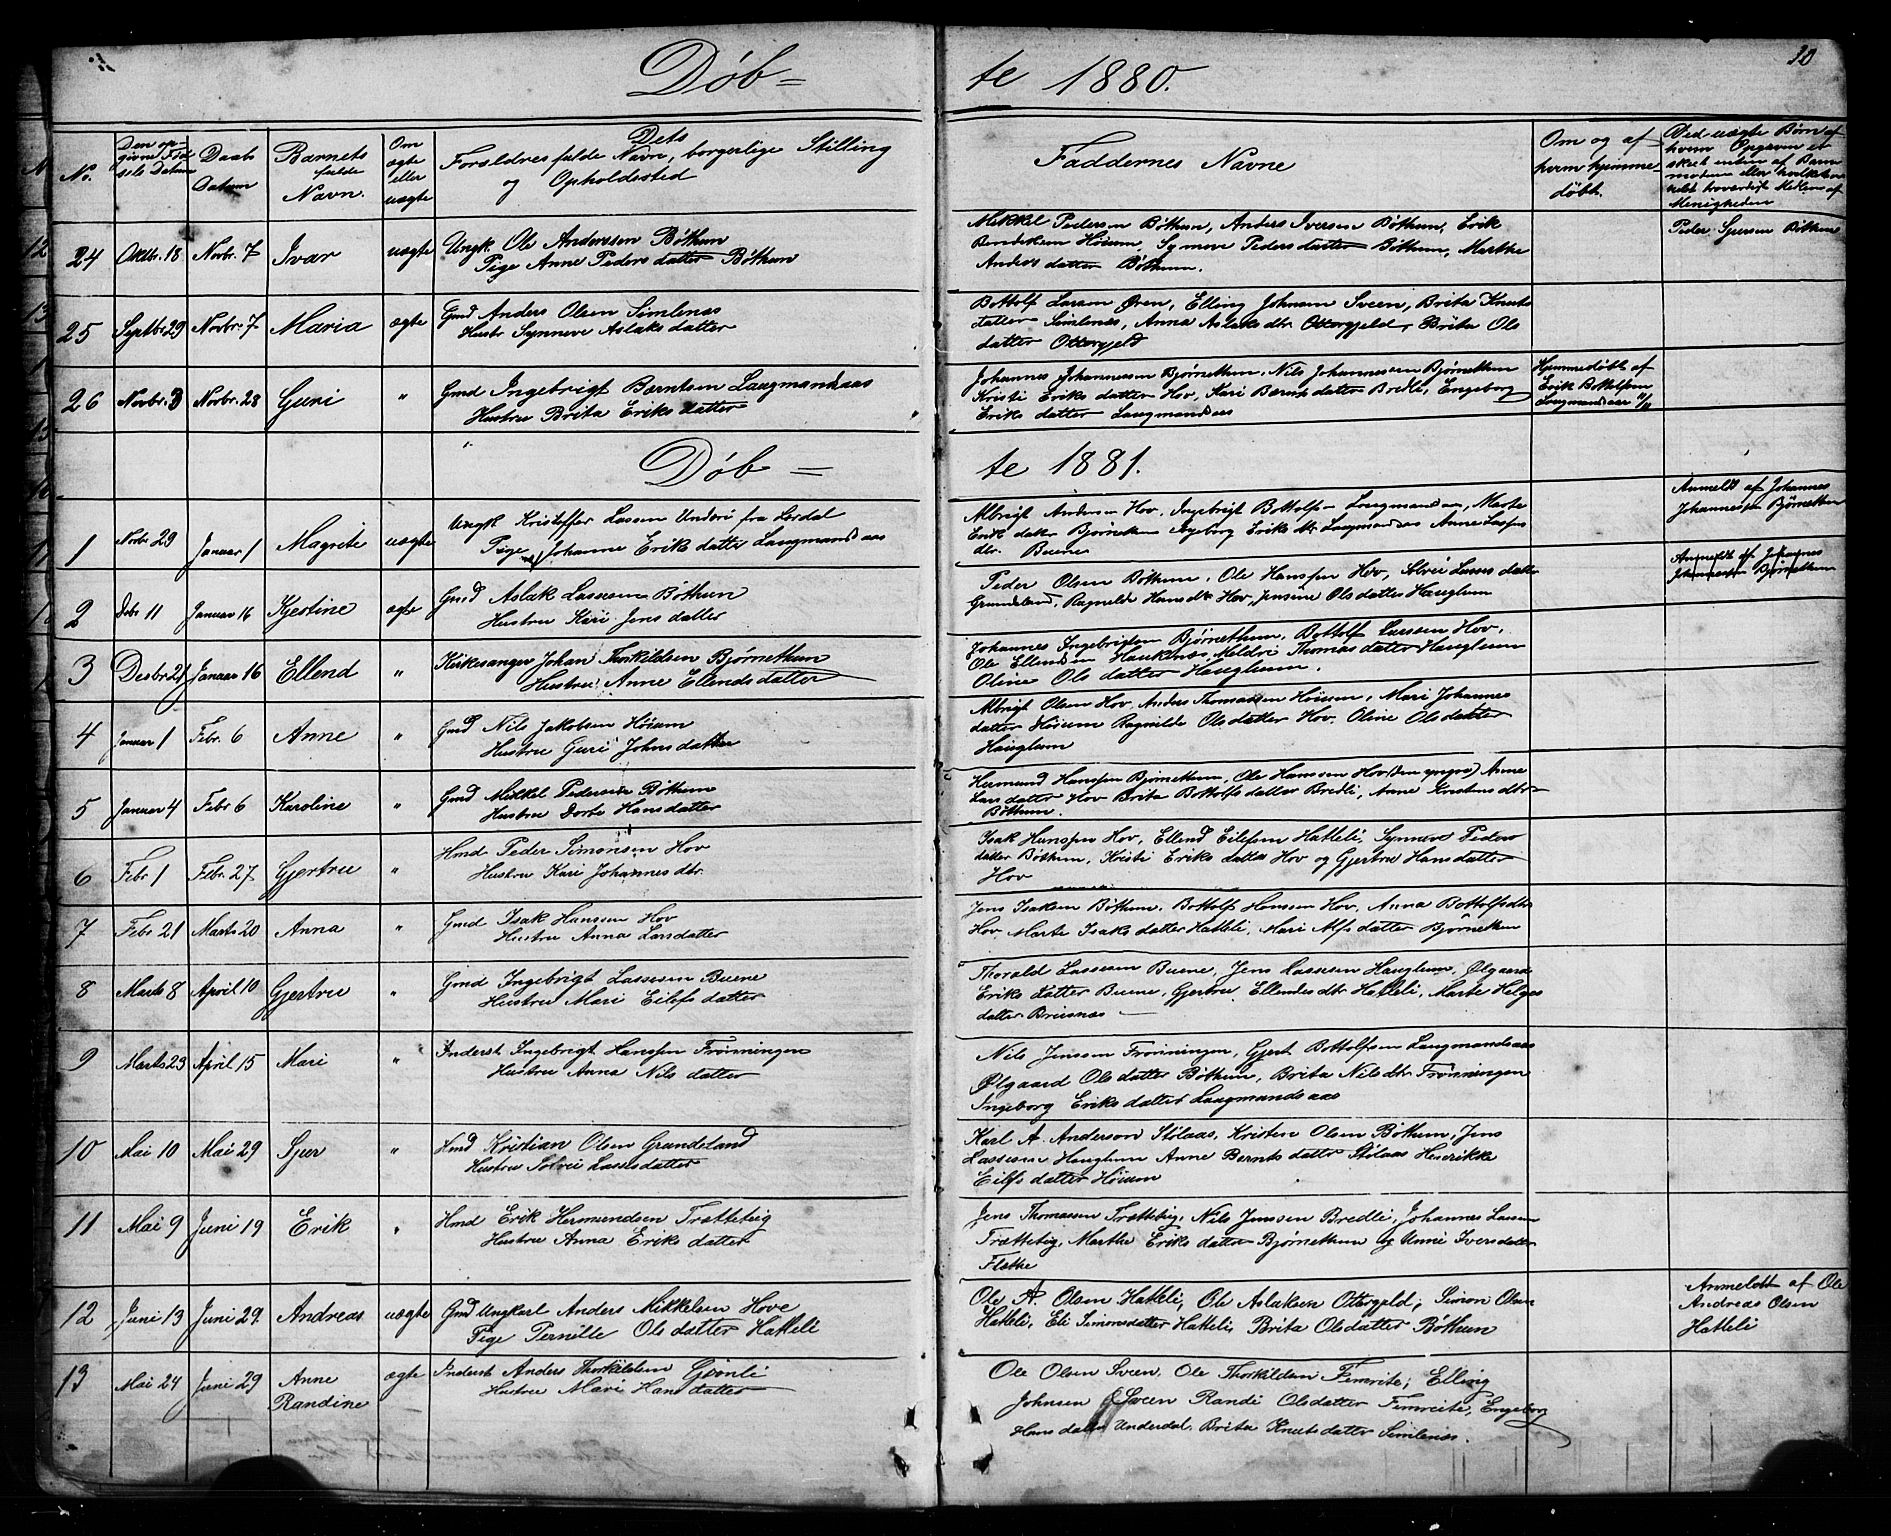 Døb=
te 1880.
30
No.
Den op-
given Fød-
sels Datum
Daabs
Datum
Barnets
fulde
Navn.
Om
ægte
eller
uægte
Dets
Forældres fulde Navn, borgerlige Stilling
og Opholdssted
Faddernes Navne
Om og af
hvem hjemme-
døbt.
Ved uægte Børn af
hvem Opgaven er
sket enten af Barn
moderen eller hvilket an
net troværdigt Medlem af
Menigheden
24 Oktbr. 18 Novbr. 7 Ivar uægte Ungk. Ole Anderssen Bøthun
Pige Anne Peders datter Bøthun
Mikkel Pedersen Bøthun, Anders Iversen Bøthun, Erik
Bendiksen Høium, Synneve Pedersdatter Bøthun, Marthe
Anders datter Bøthun.
Peder Sjursen Bøthun
25 Septbr. 29 Novbr. 7 Maria ægte Gmd Anders Olsen Simlenæs
Hustr Synneve Aslaks datter
Bottolf Larsen Øren, Elling Johnsen Sveen, Brita Knuts
datter Simlenæs, Anna Aslaks dtr Ottergjeld, Brita Ols
datter Ottergjeld
26 Novbr. 3 Novbr. 28 Guri " Gmd Ingebrigt Berntsen Laugmandsaas
Hustru Brita Eriks datter
Johannes Johannessen Bjørnethun, Nils Johannessen Bjørnethun
Kristi Eriks datter Hov, Kari Bernts datter Bredli, Engeborg
Eriks datter Laugmandsaas
Hjemmedøbt af
Erik Bottolfsen
Laugmandsaas 11/11
Døb=
te 1881.
1 Novbr 29 Januar 1 Magrite uægte Ungk Kristoffer Lassen Underi fra Lerdal
Pige Johanne Eriks datter Laugmandsaas
Albrigt Andersen Hov, Ingebrigt Bottolfsen Laugmandsaas, Marte
Eriks datter Bjørnethun Ingeborg Eriks dtr Laugmandsaas Anne Lasses
dtr. Buene
Anmeldt af Johannes
Johannessen Bjørnethun
2 Debr 11 Januar 16 Kjestine ægte Gmd Aslak Lassesen Bøthun
Hustru Kari Jens datter
Peder Olsen Bøthun, Ole Hanssen Hov, Solvei Lasses datter
Grundeland, Ragnilde Hans dtr Hov, Jensine Ols datter Hauglum
Anmeldt af Johannes
Johannessen Bjørnethun
3 Desbr 21 Januar 16 Ellend " Kirkesanger Johan Thorkildsen Bjørnethun
Hustru Anne Ellends datter
Johannes Ingebrigtsen Bjørnethun, Bottolf Larssen Hov,
Ole Ellendsen Haukenæs, Meldri Thomas datter Hauglum
Oline Ols datter Hauglum.
4 Januar 1 Febr. 6 Anne " Gmd Nils Jakobsen Høium
Hustru Guri Johns datter
Albrigt Olsen Hov, Anders Thomassen Høium, Mari Johannes
datter Høium Ragnilde Olsdatter Hov, Oline Olsdatter
Hauglum
5 Januar 4 Febr 6 Karoline " Gmd Mikkel Pedersen Bøthun
Hustru Dorte Hansdatter
Hermund Hanssen Bjørnethun, Ole Hanssen Hov (den yngre) Anne
Larsdatter Hov Brita Bottolfs datter Bredli, Anne Kristens dtr
Bøthun.
6 Febr 1 Febr. 27 Gjertru " Hmd Peder Simonsen Hov
Hustru Kari Johannes dtr.
Isak Hanssen Hov, Ellend Eilefsen Hatleli, Synneve Peders
datter Bøthun, Kristi Eriks datter Hov og Gjertru Hansdatter
Hov
7 Febr 21 Marts 20 Anna " Gmd Isak Hanssen Hov
Hustru Anna Larsdatter
Jens Isaksen Bøthun, Bottolf Hanssen Hov, Anna Bottolfsdtr
Hov, Marte Isaks datter Hatleli, Mari Alfs datter Bjørnethun
8 Marts 8 April 10 Gjertru " Gmd Ingebrigt Lassesen Buene
Hustru Mari Eilefs datter
Thorald Lassesen Buene, Jens Lassesen Hauglum, Ølgaard
Eriks datter Buene, Gjertru Ellendes dtr Hatleli, Marte Helges
datter Breisnæs
9 Marts 23 April 15 Mari " Inderst Ingebrigt Hanssen Frønningen
Hustru Anna Nils datter
Nils Jenssen Frønningen, Gjert Bottolfsen Laugmandsaas
Ølgaard Ols datter Bøthun, Brita Nils dtr Frønningen
Ingeborg Eriks datter Laugmandsaas
10 Mai 10 Mai 29 Sjur " Hmd Kristian Olsen Grundeland
Hustru Solvei Lassesdatter
Karl A. Anderson Stølaas, Kristen Olsen Bøthun, Jens
Lassesen Hauglum Anne Bernts datter Stølaas Henrikke
Eilfs datter Høium
11 Mai 9 Juni 19 Erik " Hmd Erik Hermundsen Trætteteig
Hustru Anna Eriks datter
Jens Thomassen Trætteteig, Nils Jenssen Bredli, Johannes Lassen
Trætteteig, Marthe Eriks datter Bjørnethun og Anne Iversdatter
Flæthe
12 Juni 13 Juni 29. Andreas uægte Gmd Ungkarl Anders Mikkelsen Hove
Pige Pernille Ols datter Hatleli
Ole A. Olsen Hatleli, Ole Aslaksen Ottergjeld, Simon Olsen
Hatleli, Eli Simonsdatter Hatleli, Brita Olsdatter Bøthun
Anmeldt af Ole
Andreas Olsen
Hatleli
13 Mai 24 Juni 29 Anne
Randine ægte Inderst Anders Thorkildsen Grønli
Hustru Mari Hans datter
Ole Olsen Sveen, Ole Thorkildsen Fimreite, Elling
Johnsen Sveen Randi Olsdatter Fimreite, Engeborg
Hans datter Underdal, Brita Knuts datter Simlenæs.